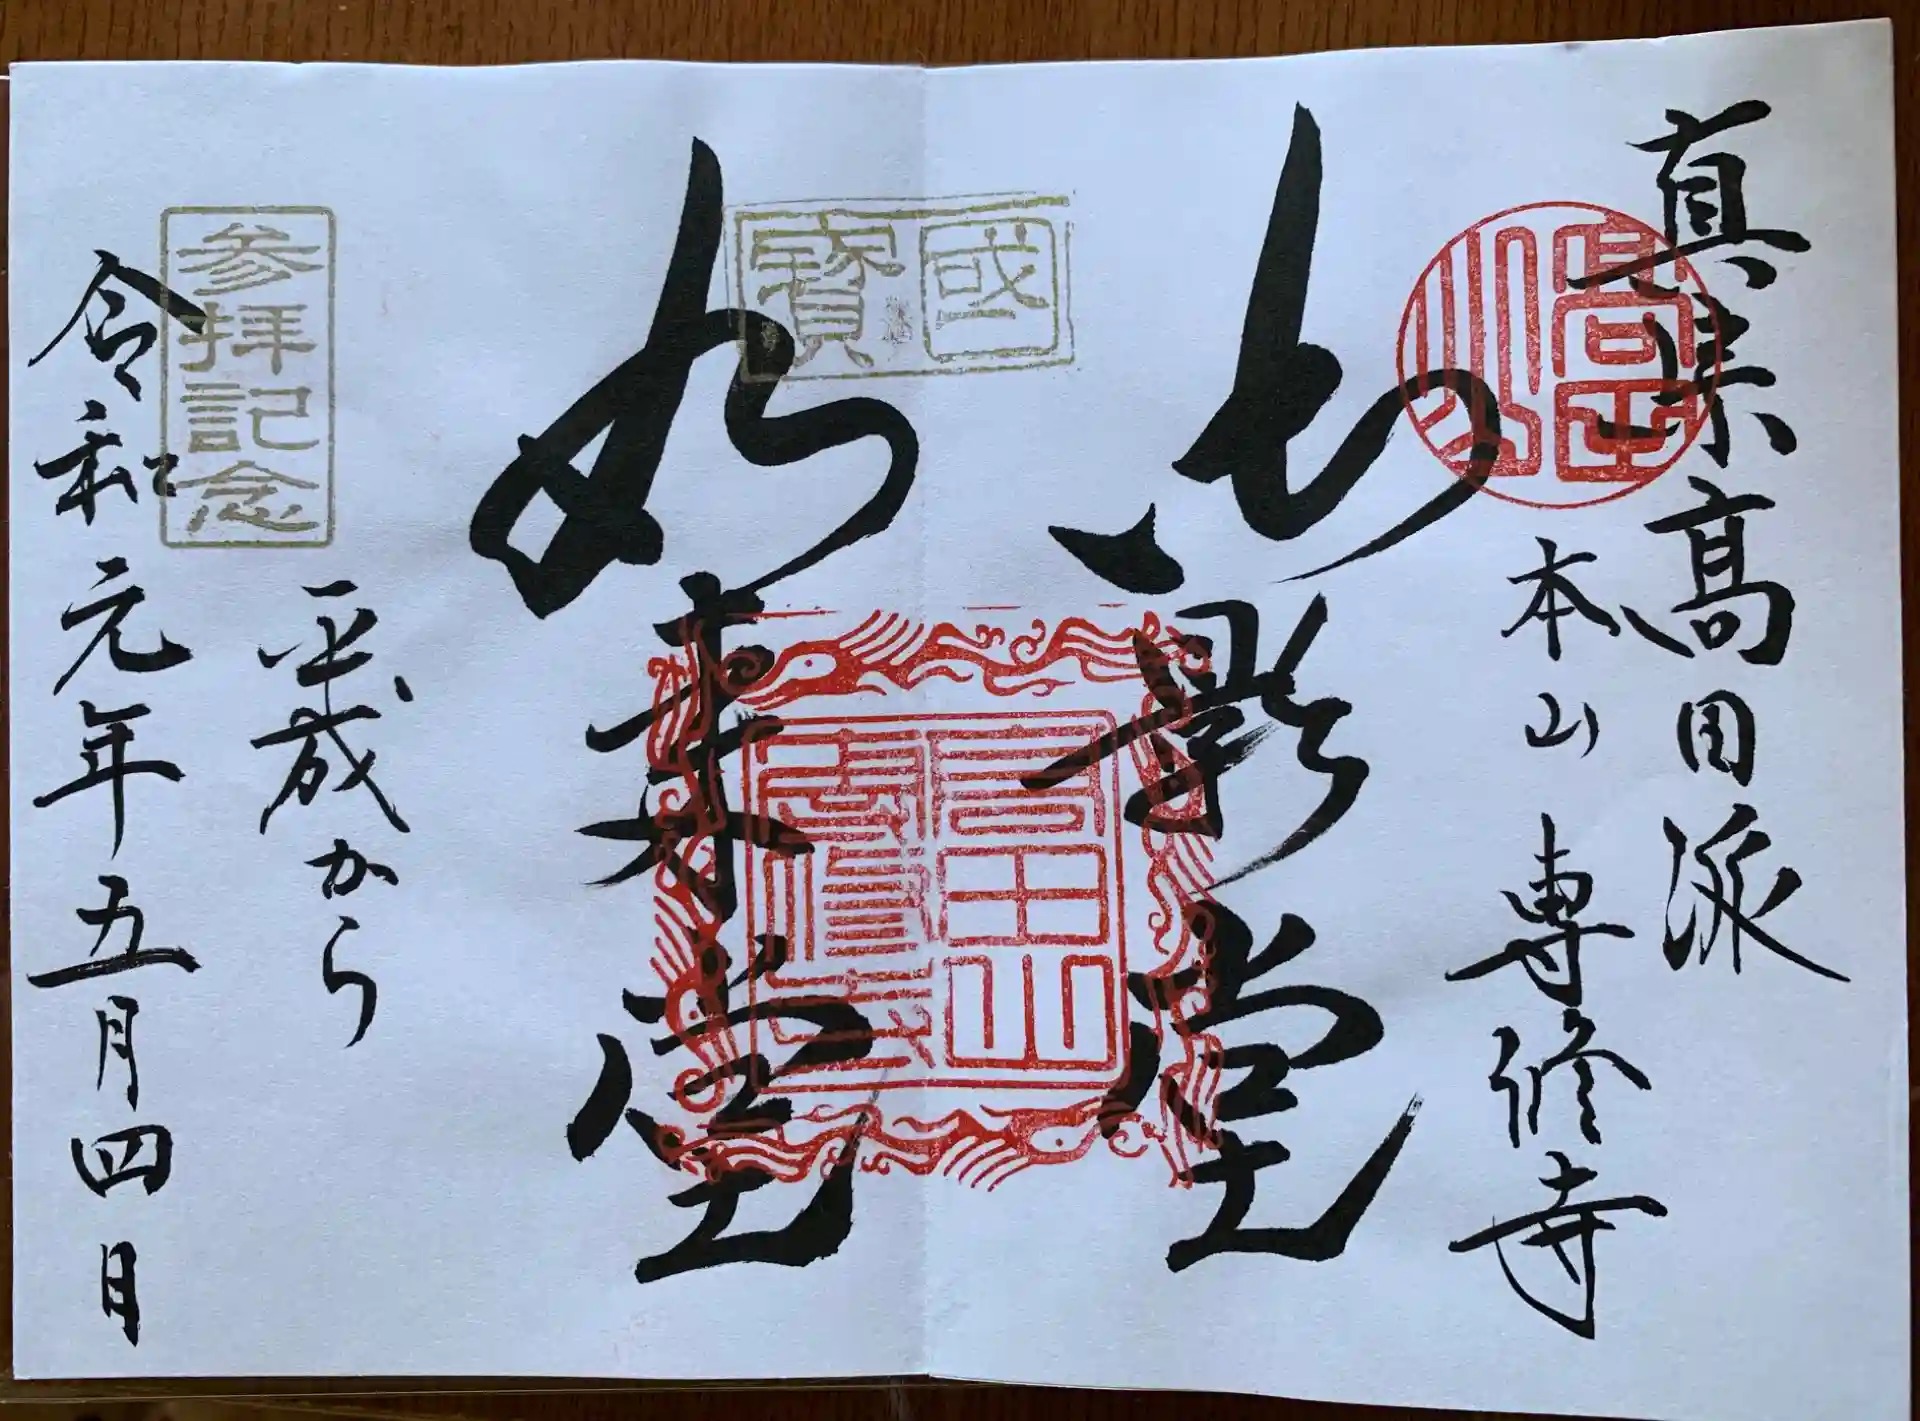 真宗高田派
本山 専修寺
高田山
御影堂
國寶
如来堂
高田山
専修寺
平成から
参拝記念
令和元年五月四日